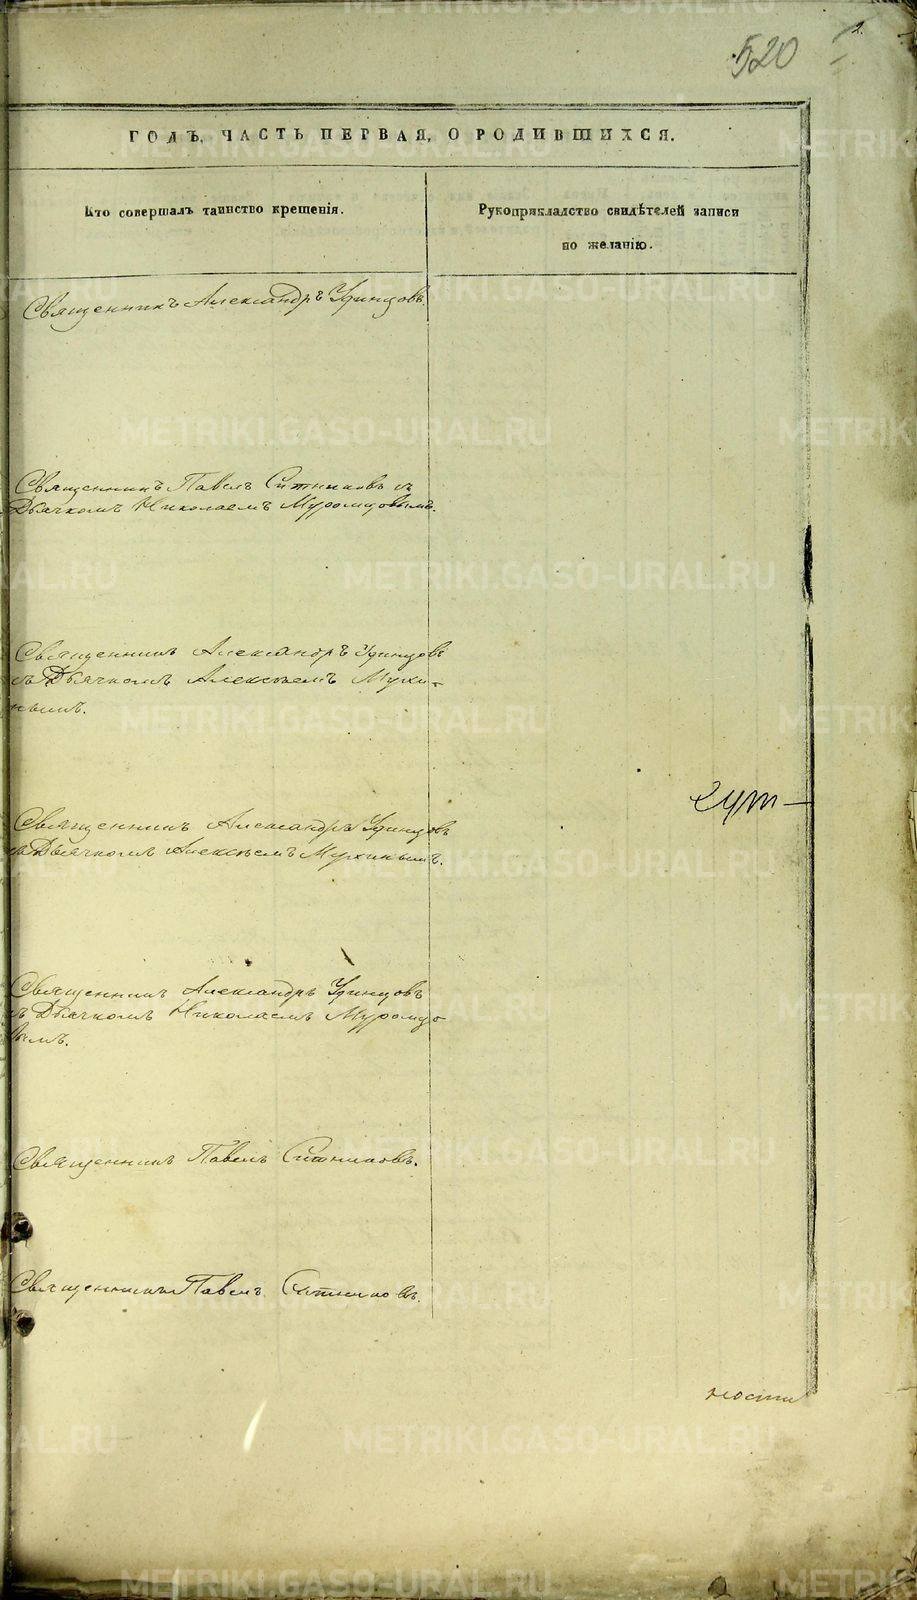 520
2.
ГОДЪ, ЧАСТЬ ПЕРВАЯ, О РОДИВШИХСЯ.
Кто совершалъ таинство крещенія.
Рукоприкладство свидѣтелей записи
по желанію.
Священникъ Александръ Удинцовъ.
Священникъ Павелъ Ситниковъ съ
Дьячкомъ Николаемъ Муромцовымъ.
Священникъ Александръ Удинцовъ
съ Дьячкомъ Алексѣемъ Мухи-
нымъ.
Священникъ Александръ Удинцовъ
съ Дьячкомъ Алексѣемъ Мухинымъ.
Священникъ Александръ Удинцовъ
съ Дьячкомъ Николаемъ Муромцо-
вымъ.
Священникъ Павелъ Ситниковъ.
Священникъ Павелъ Ситниковъ.
ности
METRIKI.GASO-URAL.RU